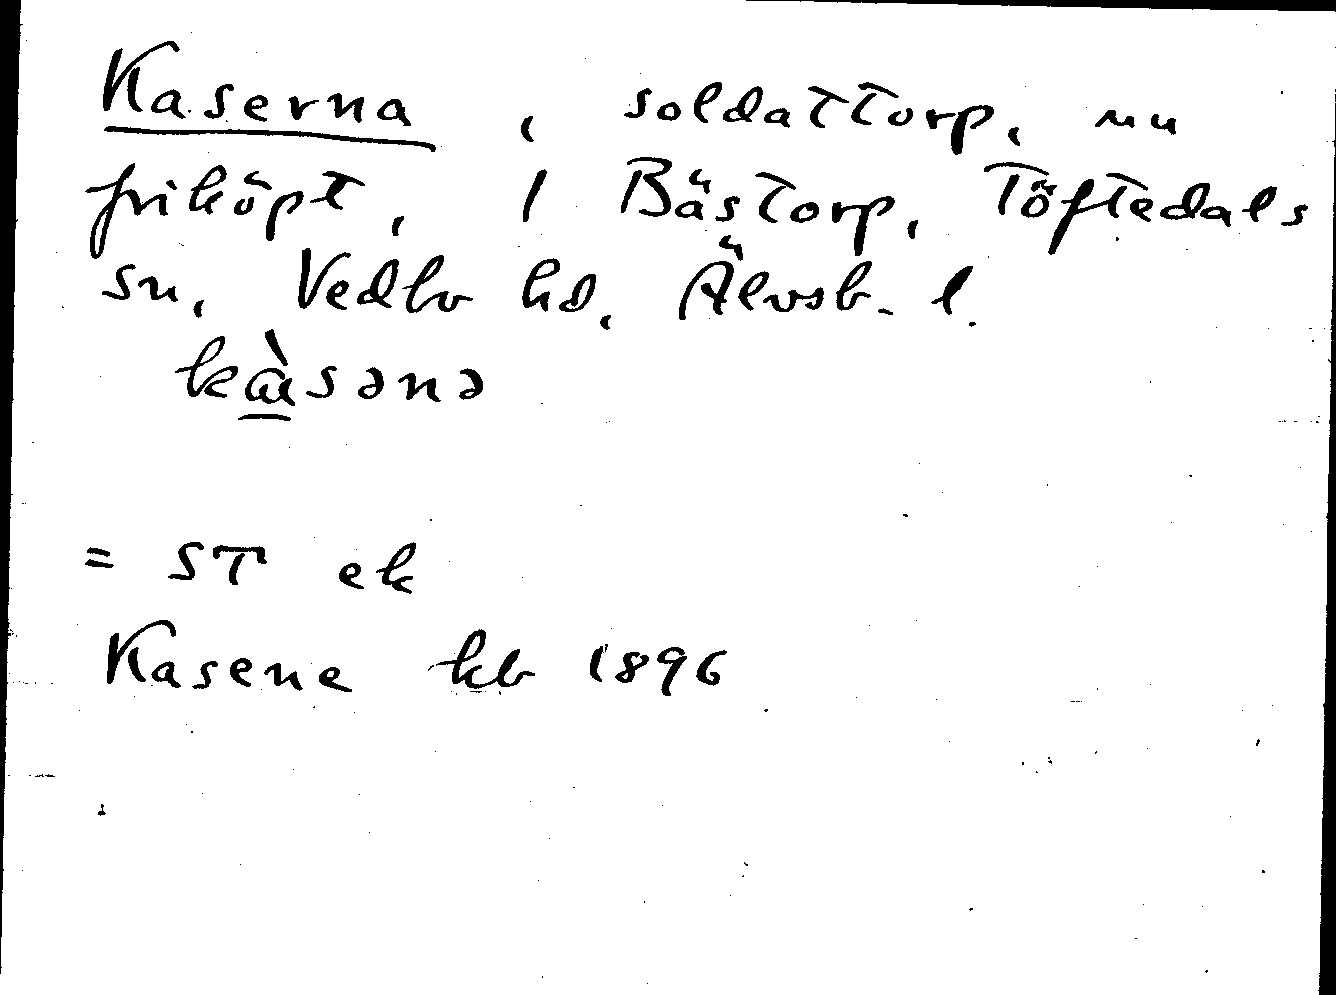 Kaserna, soldattorp, nu
friköpt, 1 Bästorp, Töftedals
sn, Vedbo hd, Älvsb. l.
kɑ̀sənə
= ST ek
Kasene kb 1896